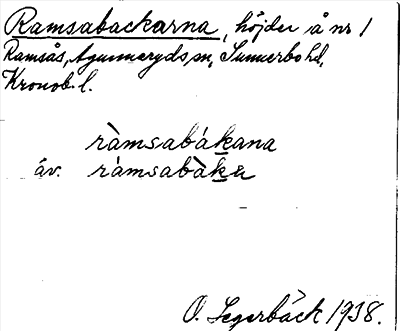 Ramsabackarna, höjder å nr 1
Ramsås, Agunnaryds sn, Sunnerbo hd,
Kronob. l.
ràmsabákana
äv. ràmsabàka
O. Segerbäck 1938.